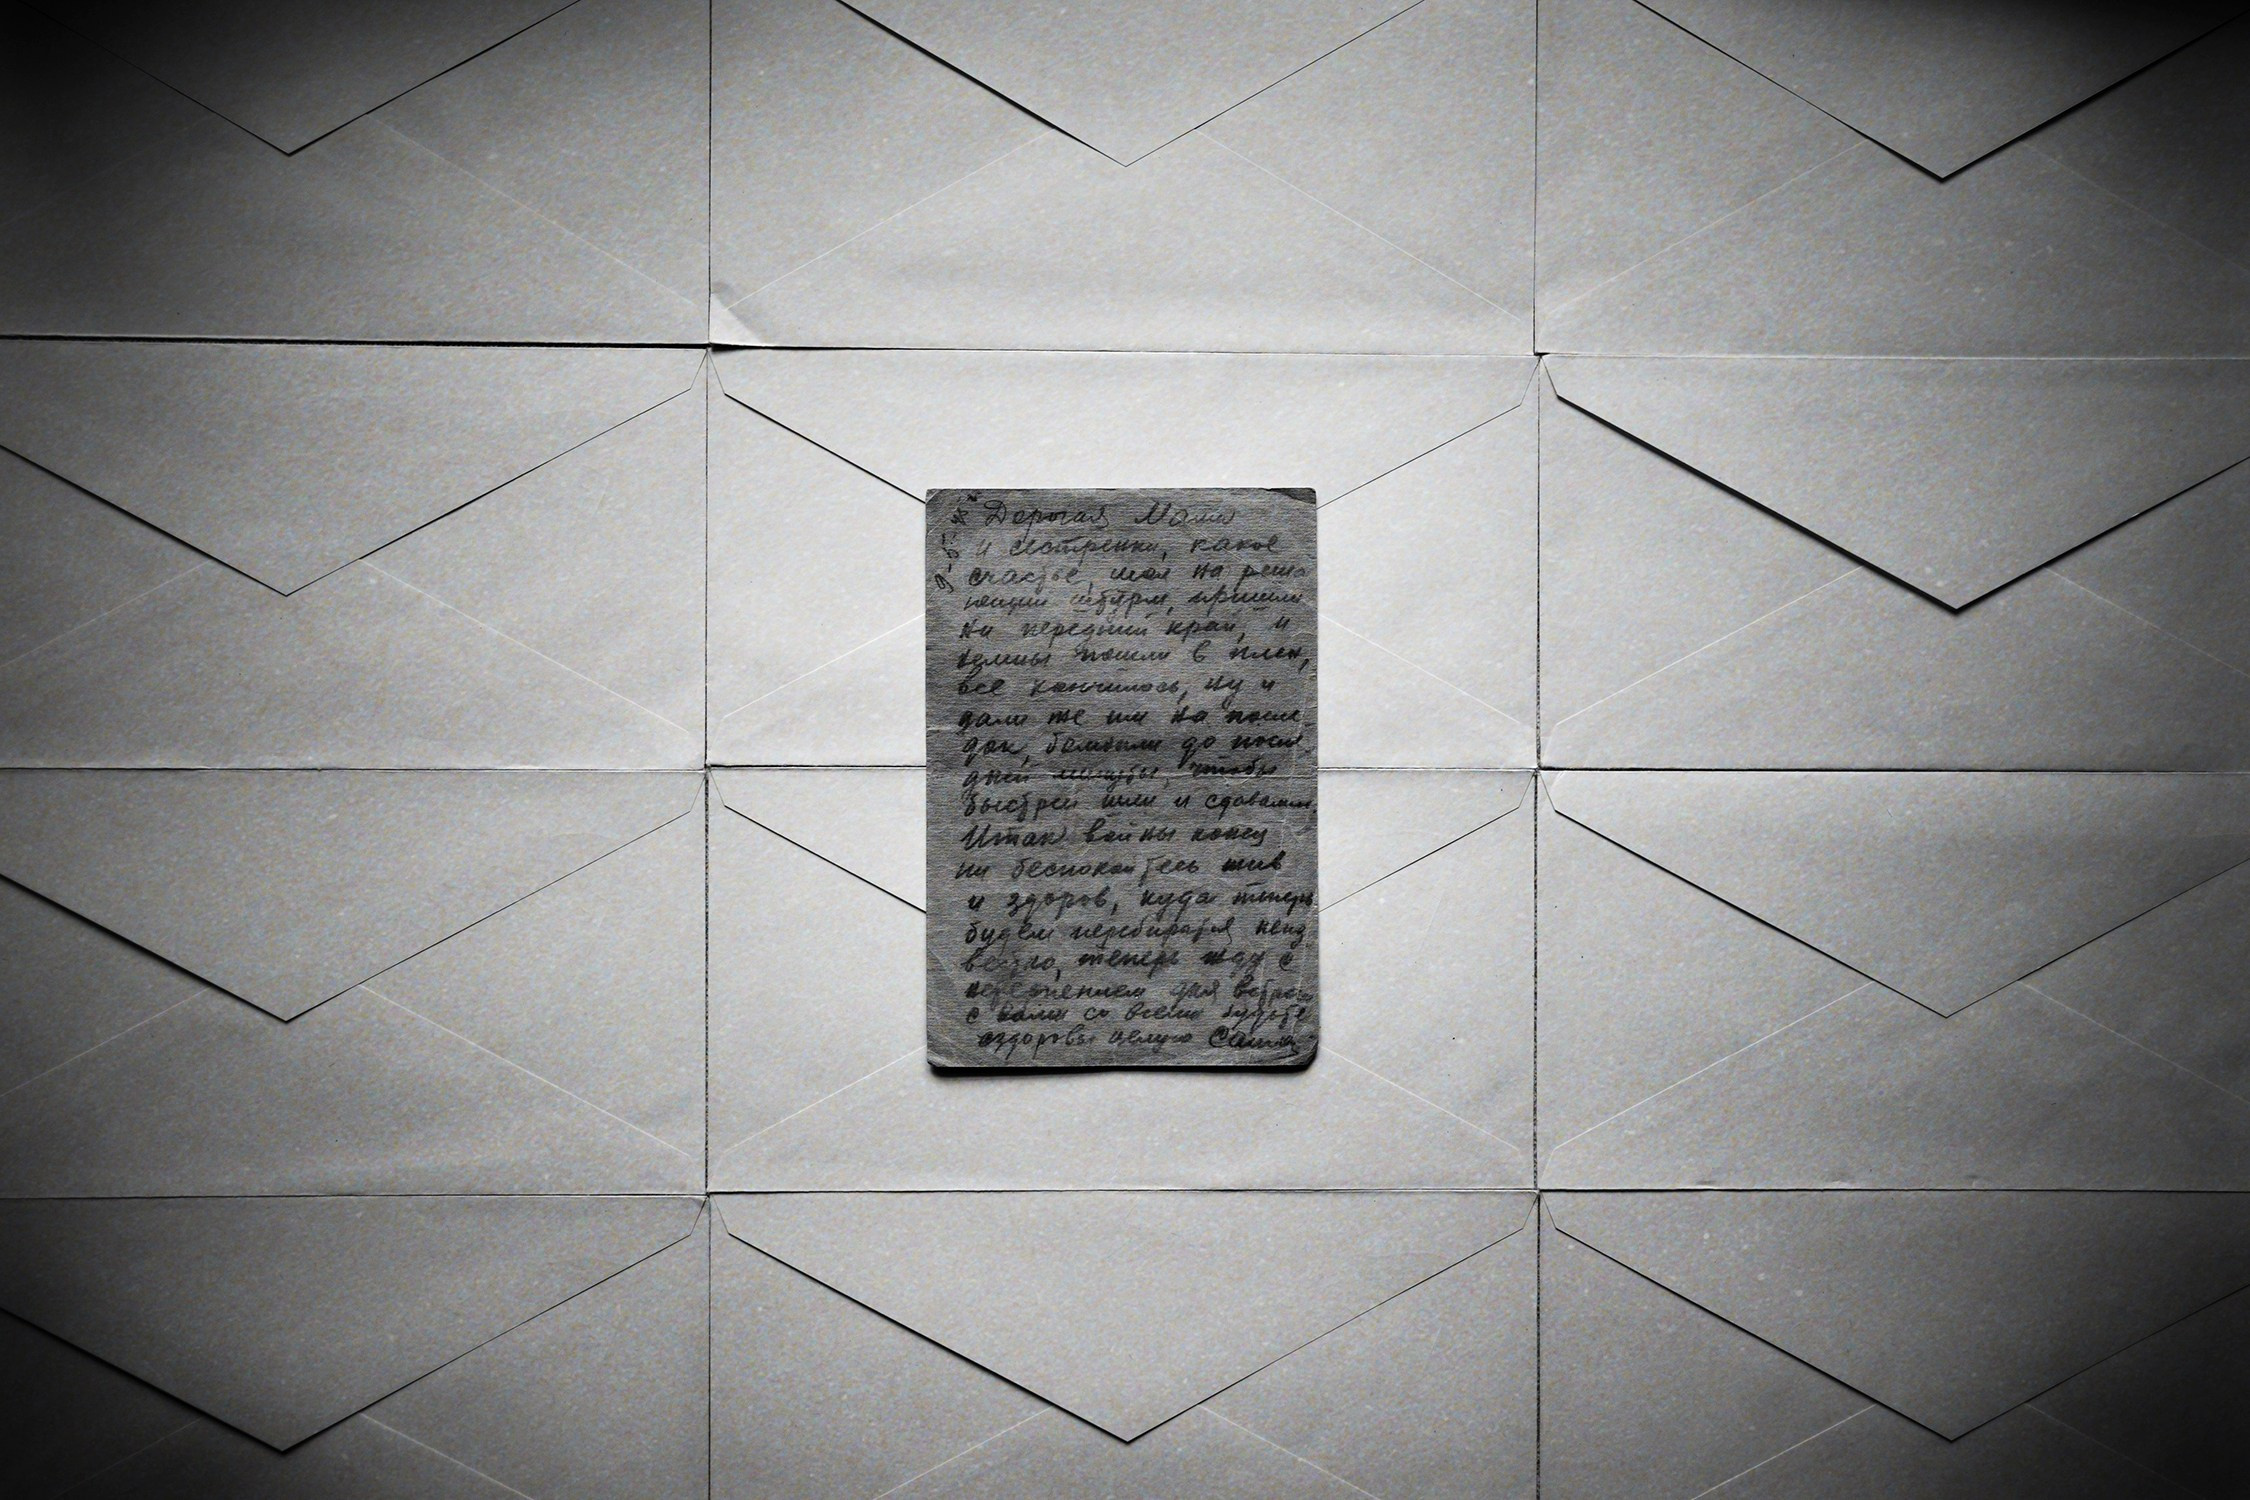 Дорогая Мама
и сестренки, какое
счастье, шел на реша
ющий штурм, пришли
на передний край, и
немцы пошли в плен,
все кончилось, ну и
дали же им на после
док, бомбили до послед
дней минуты, чтобы
быстрей шли и сдавались.
Итак войны конец
ни беспокойтесь жив
и здоров, куда теперь
будем перебиратся неиз
вестно, теперь жду с
нетерпением дня встречи
с вами со всеми будьте
здоровы целую Саша